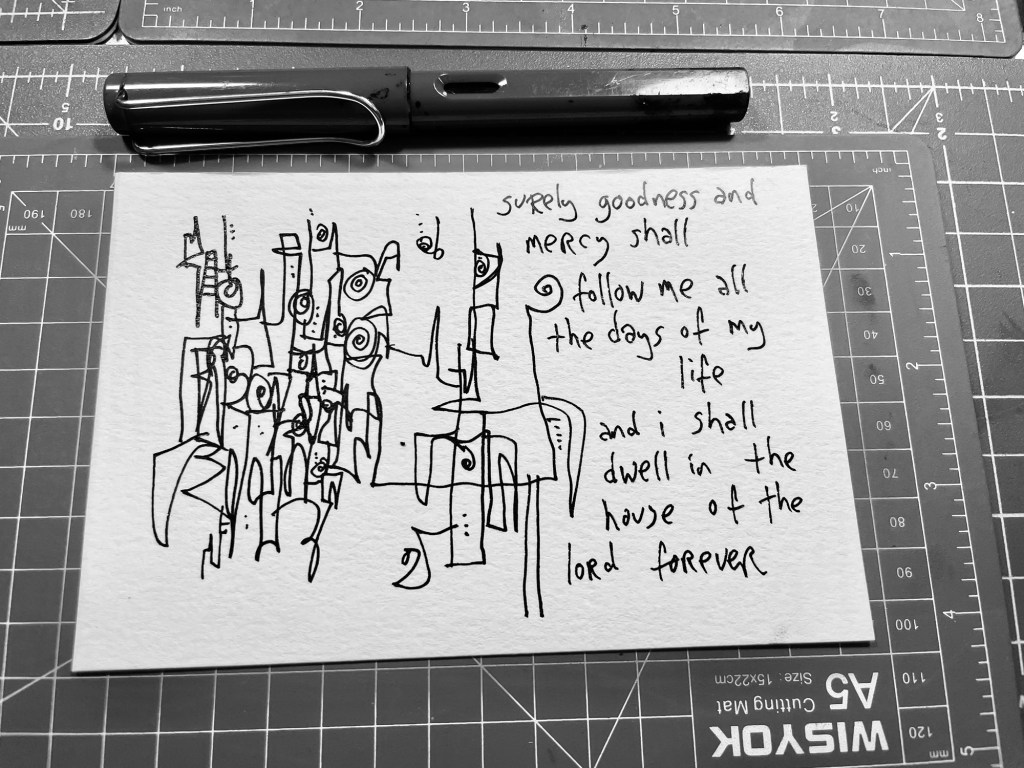 surely goodness and
mercy shall
follow me all
the days of my
life
and i shall
dwell in the
house of the
lord forever
WISYOK A5
Cutting Mat
Size: 15x22cm
inch
1
2
3
4
5
mm
10
20
30
40
50
60
70
80
90
100
110
120
190
180
mm
1
2
3
4
5
7
8
5
10
2
3
3
2
inch